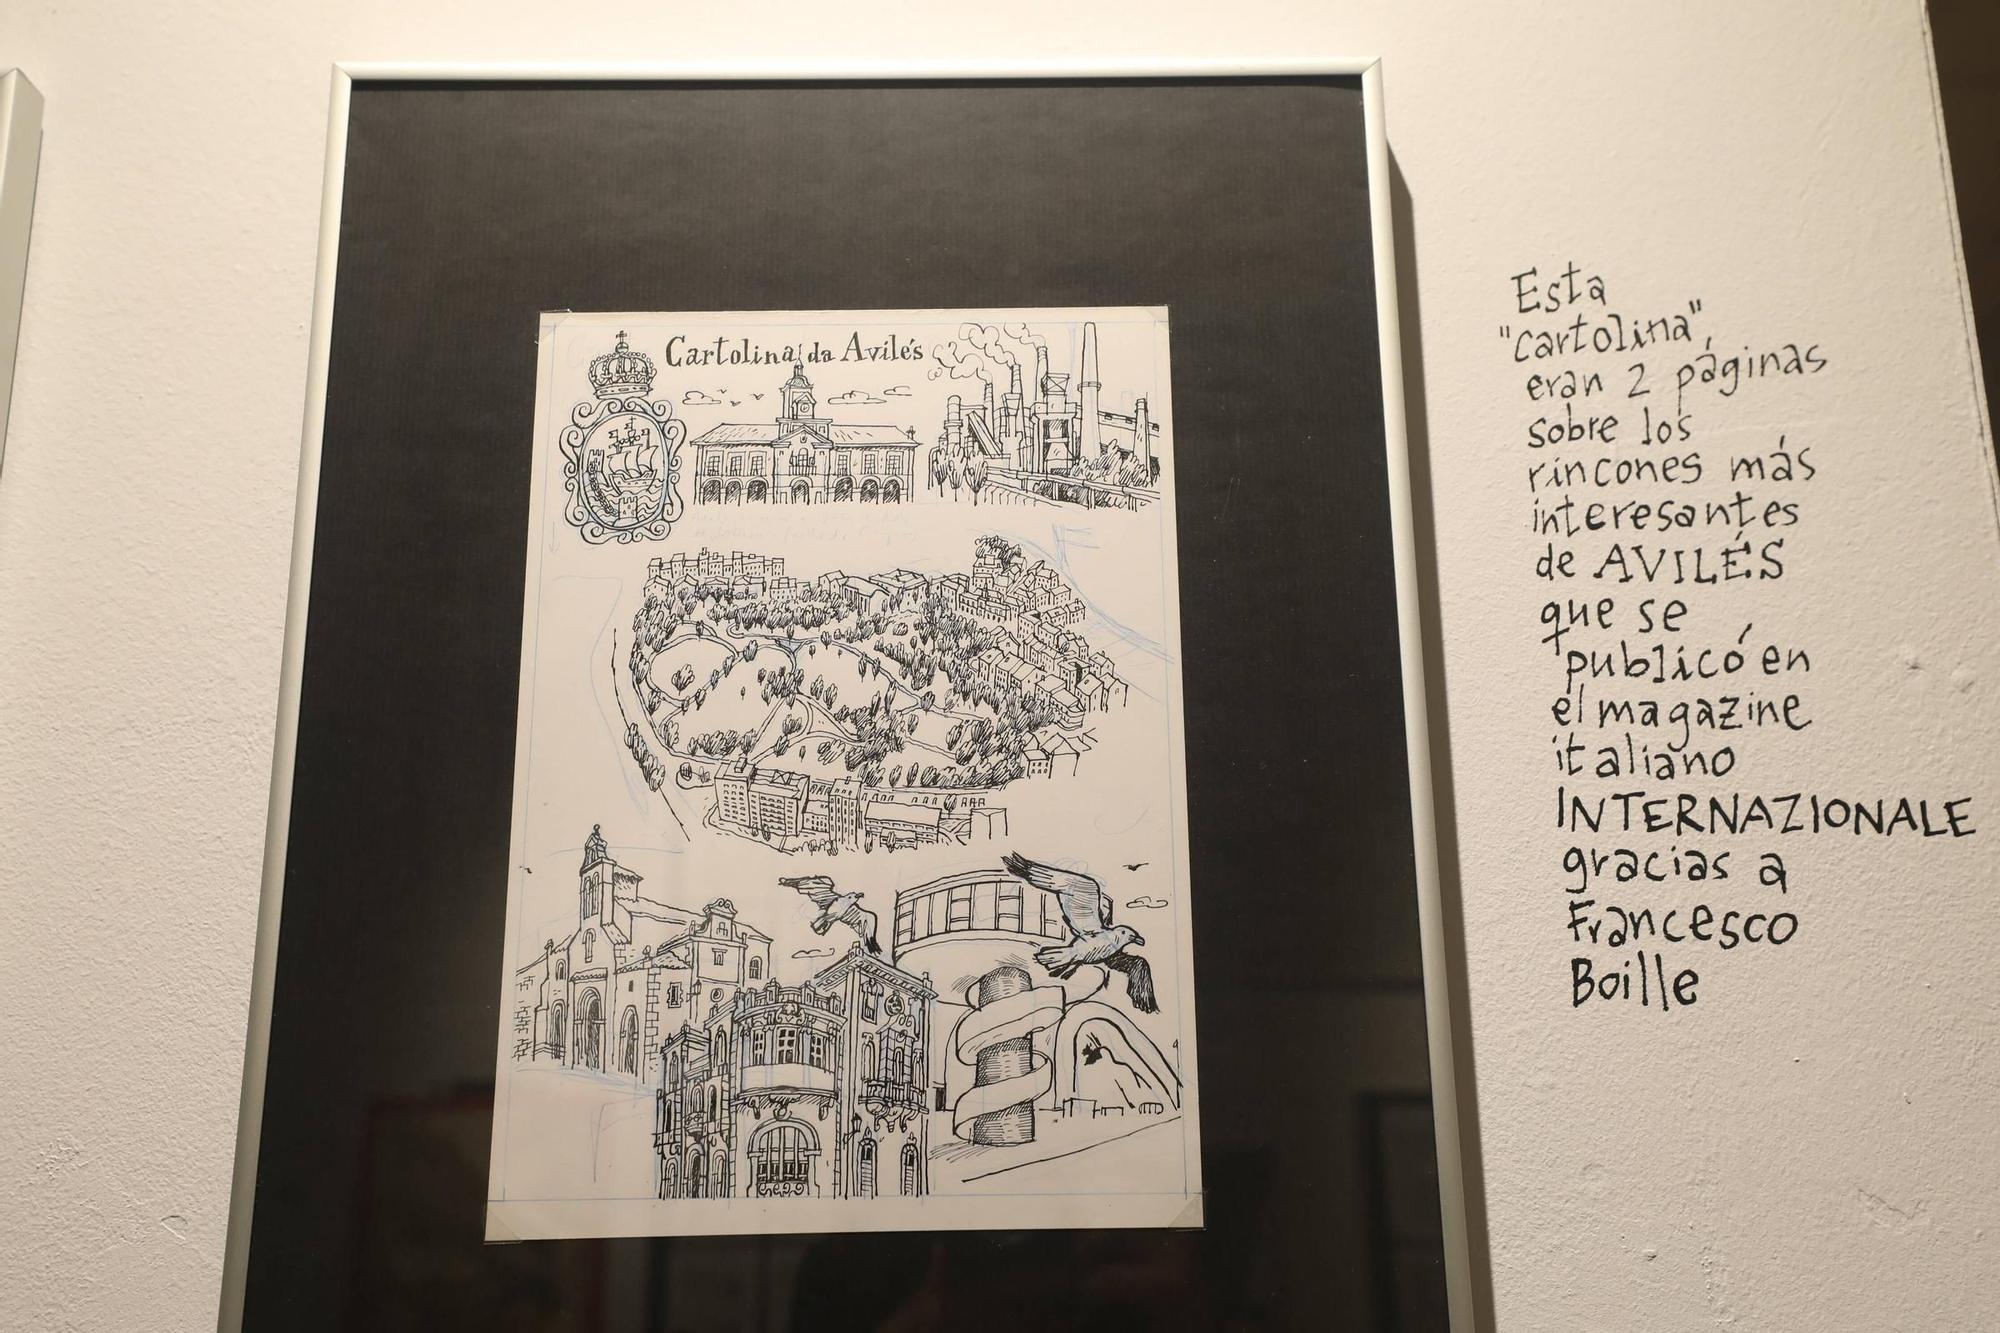 Cartolina da Avilés
Esta
"cartolina",
eran 2 páginas
sobre los
rincones más
interesantes
de AVILÉS
que se
publicó en
el magazine
italiano
INTERNAZIONALE
gracias a
Francesco
Boille